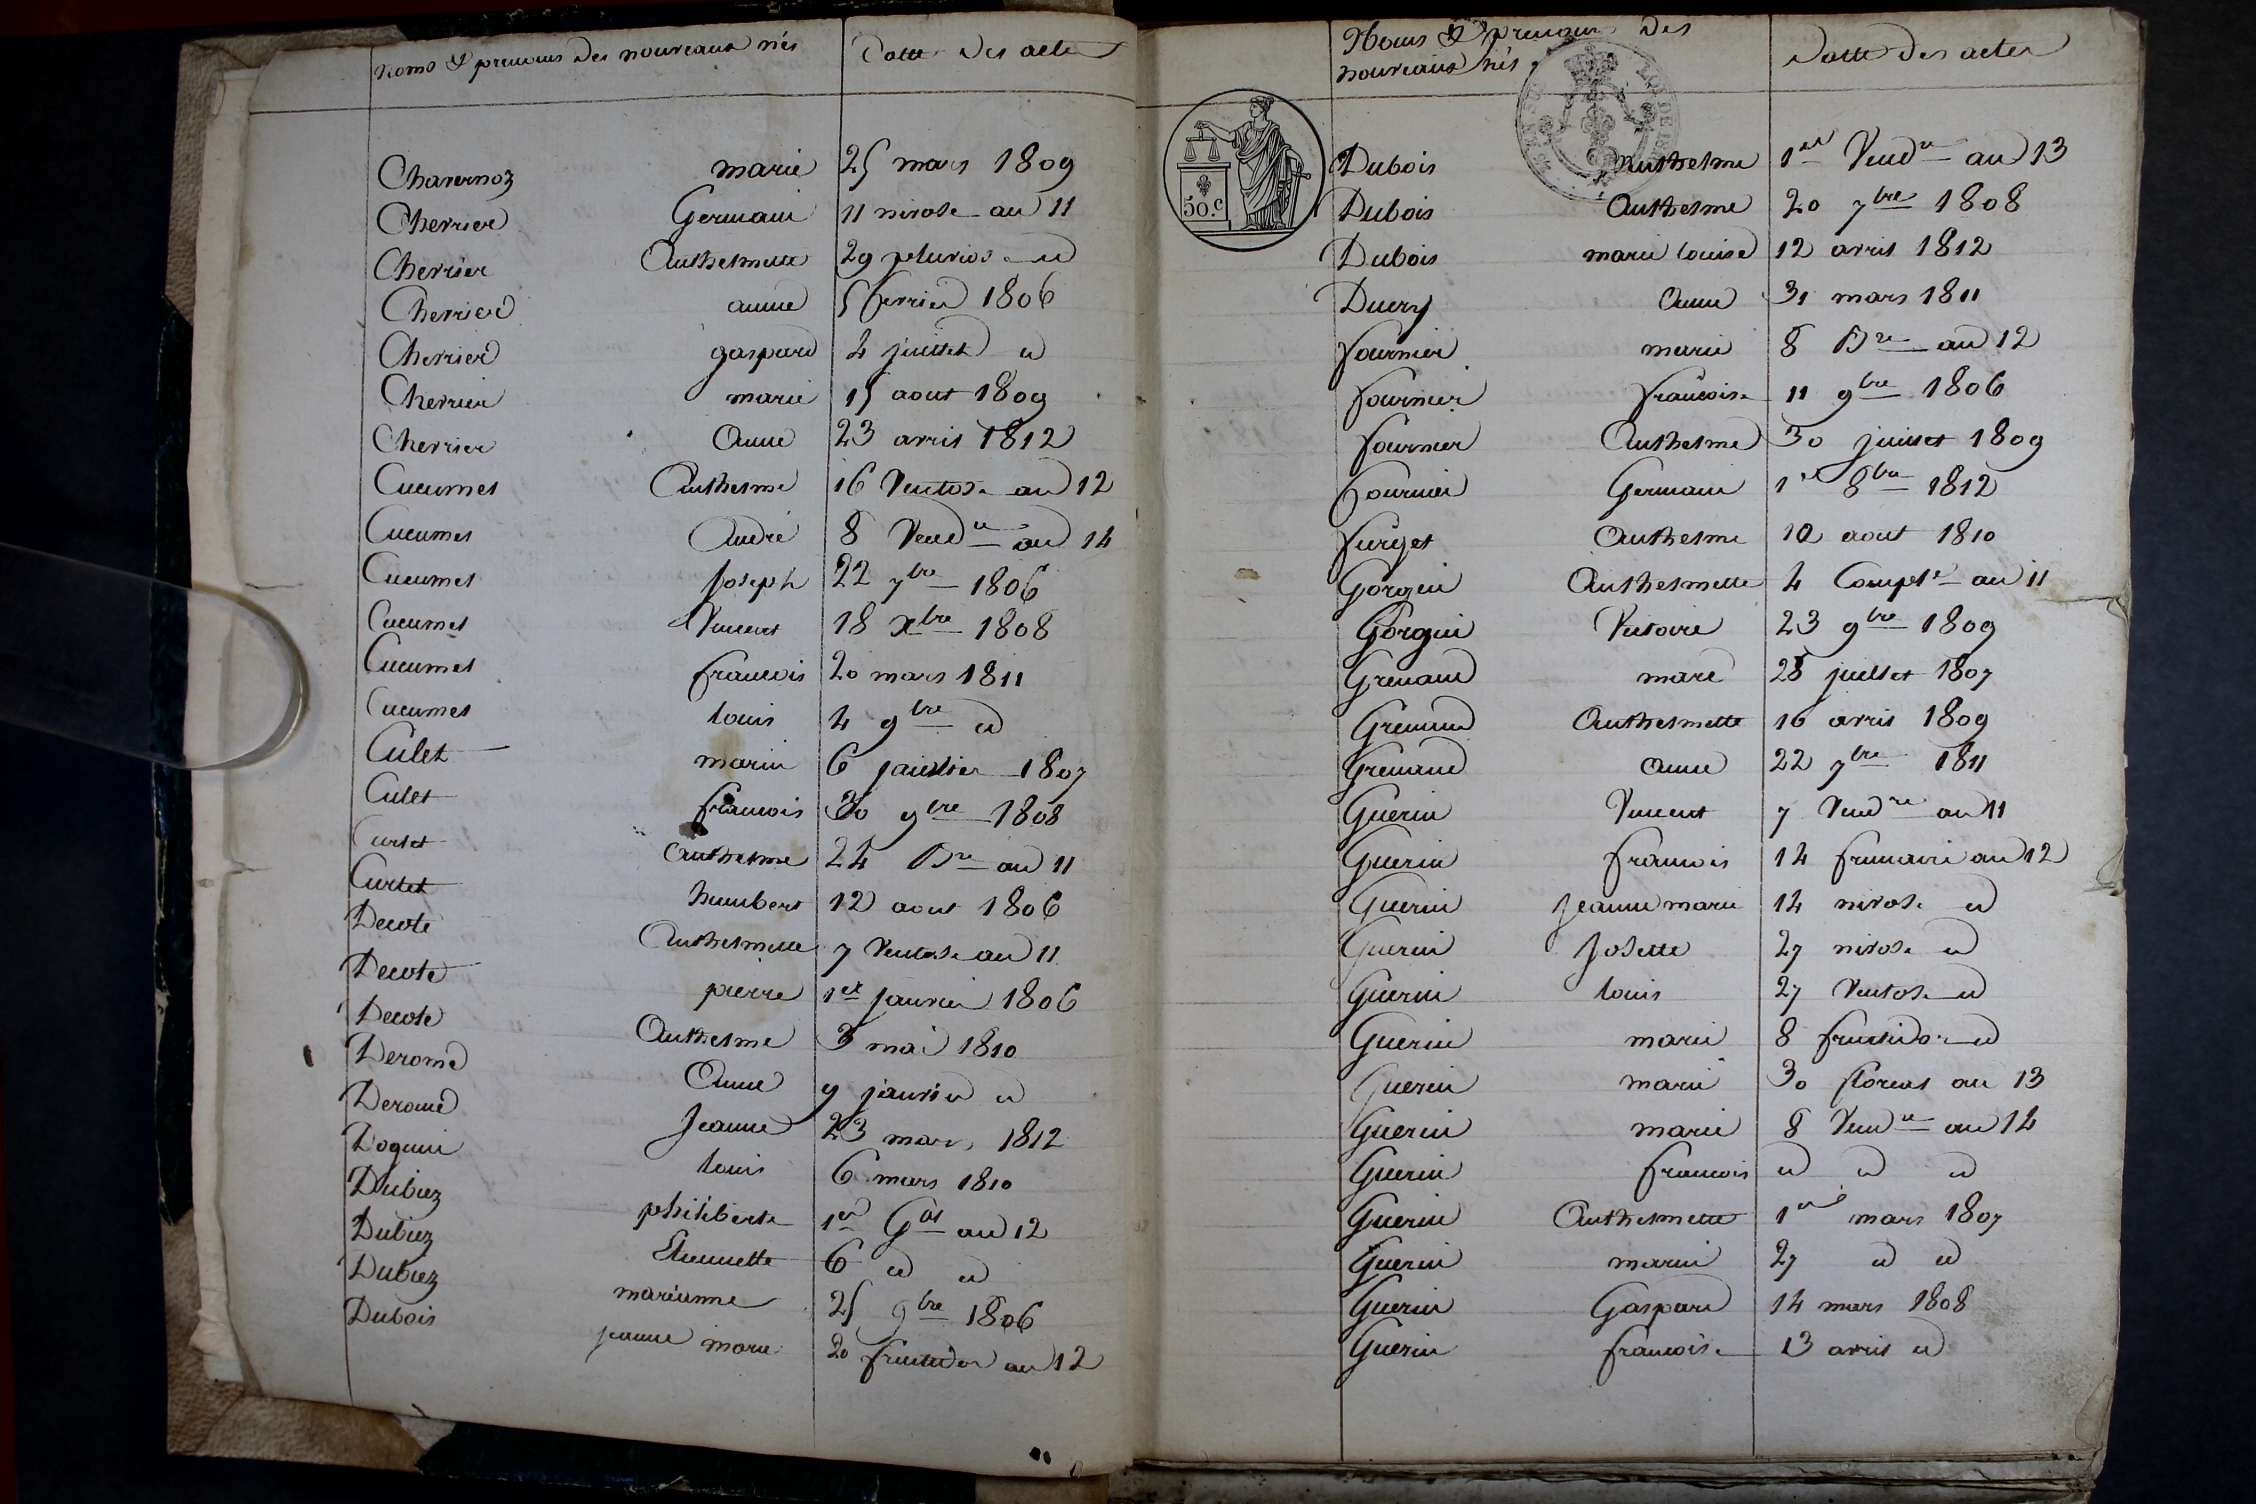 Noms & prenoms des nouveaux nés Datte des actes
Chavernoz marie 25 mars 1809
Cherrier Germain 11 nivose an 11
Cherrier Anthelmette 29 pluviose id
Cherrier anne 5 fevrier 1806
Cherrier gaspard 4 juillet id
Cherrier marie 15 aout 1809
Cherrier Anne 23 avril 1812
Cucumet Anthelme 16 Ventose an 12
Cucumet André 8 Vendre an 14
Cucumet Joseph 22 7bre 1806
Cucumet Vincent 18 Xbre 1808
Cucumet francois 20 mars 1811
Cucumet louis 4 9bre id
Culet marin 6 janvier 1807
Culet francois 30 9bre 1808
Curtet anthelme 24 Bre an 11
Curtet humbert 12 aout 1806
Decote Anthelmette 7 Ventose an 11
Decote pierre 1er janvier 1806
Decote Anthelme 3 mai 1810
Derome Anne 9 janvier id
Derome Jeanne 23 mars 1812
Doguin louis 6 mars 1810
Dubiez philiberte 1er Gal an 12
Dubiez Etiennette 6 id id
Dubiez marianne 25 9bre 1806
Dubois jeanne marie 20 fructidor an 12
Noms & prenoms des
nouveaux nés Datte des actes
50.C
Dubois Anthelme 1er Vendre an 13
Dubois Anthelme 20 7bre 1808
Dubois marie louise 12 avril 1812
Ducry Anne 31 mars 1811
fournier marie 8 Bre an 12
fournier francoise 11 9bre 1806
fournier Anthelme 30 juillet 1809
fournier Germain 1er 8bre 1812
furget Anthelme 10 aout 1810
Gorgin Anthelmette 4 Complre an 11
Gorgin Victoire 23 9bre 1809
Grenand marc 28 juillet 1807
Grenand Anthelmette 16 avril 1809
Grenand Anne 22 7bre 1811
Guerin Vincent 7 Vendre an 11
Guerin francois 14 frimaire an 12
Guerin Jeanne marie 14 nivose id
Guerin Josette 27 nivose id
Guerin louis 27 Ventose id
Guerin marie 8 fructidor id
Guerin marie 30 floreal an 13
Guerin marie 8 Vendre an 14
Guerin francois id id id
Guerin Anthelmette 1er mars 1807
Guerin marin 27 id id
Guerin Gaspard 14 mars 1808
Guerin francoise 13 avril id